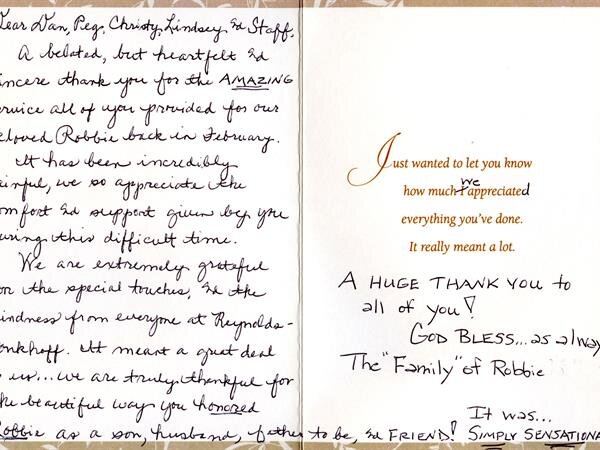 Dear Dan, Peg, Christy, Lindsey & Staff,
A belated, but heartfelt &
incere thank you for the AMAZING
ervice all of you provided for our
eloved Robbie back in February.
It has been incredibly
ainful, we so appreciate the
omfort & support given by you
uring this difficult time.
We are extremely grateful
or the special touches, & the
indness from everyone at Reynolds-
onkhoff. It meant a great deal
us...we are truly thankful for
he beautiful way you honored
Robbie as a son, husband, father to be, & FRIEND! It was... SIMPLY SENSATIONA
Just wanted to let you know
how much I we appreciated
everything you've done.
It really meant a lot.
A HUGE THANK YOU to
all of you!
GOD BLESS...as alway
The "Family" of Robbie